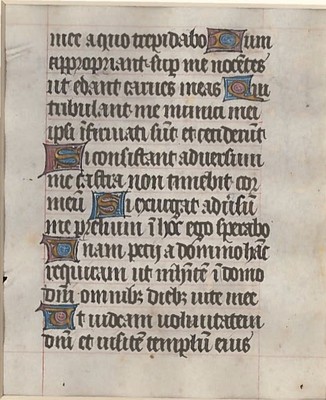 mee a quo trepidabo Dum
appropriant sup me nocētes
ut edant carnes meas Qui
tribulant me inimici mei
ipsi īfirmati sūt et ceciderūt
Si consistant adversum
me castra non timebit cor
meū Si exurgat adūsū
me prelium ī hoc ego sperabo
Unam pecii a domino hāc
requiram ut inhītē ī domo
dn̄i omnibꝫ diebꝫ vite mee
Ut videam voluntatem
dn̄i et visitē templū eius